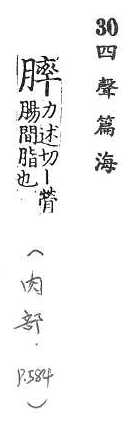 30四聲篇海
膟
力述切丨膋
腸間脂也
(肉部.
P.584)